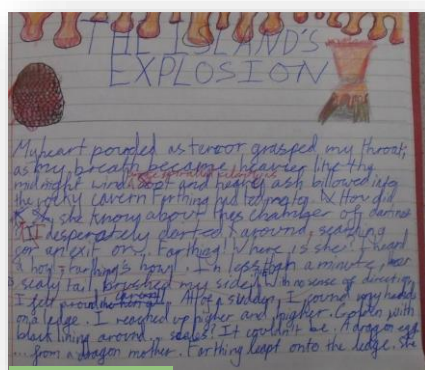 THE ISLAND'S
EXPLOSION
My heart pounded as teroor grasped my throat;
as my breath became heavier like the
midnight wind. Soot and heavy ash billowed into
the rocky cavern Farthing had led me to. How did
she know about this chamber of
I desperately darted around, searching
for an exit only Farthing! Where is she? I heard
a howl - Farthing's howl. In less than a minute, her
scaly tail brushed my side. With no sense of direction,
I felt around All of a sudden, I found my hands
on a ledge. I reached up higher and higher. Golden with
black lining around... scales! It couldn't be. A dragon egg
... from a dragon mother. Farthing leapt onto the ledge. She